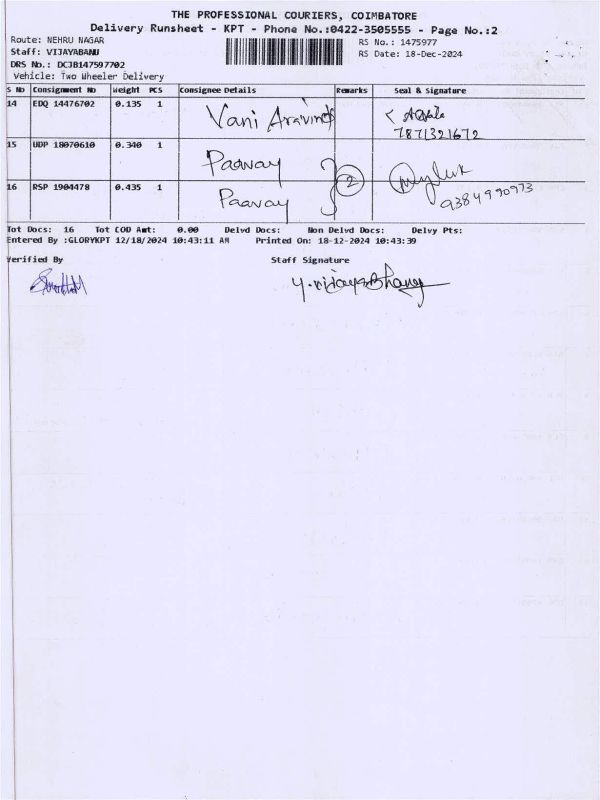 THE PROFESSIONAL COURIERS, COIMBATORE
Delivery Runsheet - KPT - Phone No.:0422-3505555 - Page No.:2
Route: NEHRU NAGAR
RS No.: 1475977
Staff: VIJAYABANU
RS Date: 18-Dec-2024
DRS No.: DCJB147597702
Vehicle: Two Wheeler Delivery
S No Consignment No Weight PCS Consignee Details Remarks Seal & Signature
14 EDQ 14476702 0.135 1 Vani Aravind
7871321672
15 UDP 18070610 0.340 1 Paavay 2
16 RSP 1904478 0.435 1 Paavay 9384990973
Tot Docs: 16 Tot COD Amt: 0.00 Delvd Docs: Non Delvd Docs: Delvy Pts:
Entered By :GLORYKPT 12/18/2024 10:43:11 AM Printed On: 18-12-2024 10:43:39
Verified By Staff Signature